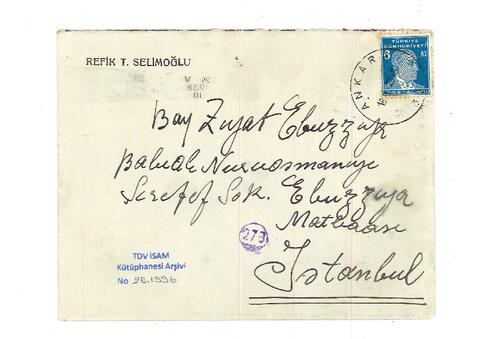 REFİK T. SELİMOĞLU
TÜRKİYE
CUMHURİYETİ
6
POSTALARI
ANKARA
18
V
1938
10
Bay Ziyat Ebuzziya
Babıali Nuruosmaniye
Şeref Sok. Ebuzziya
Matbaası
İstanbul
273
TDV İSAM
Kütüphanesi Arşivi
No 2E.1996